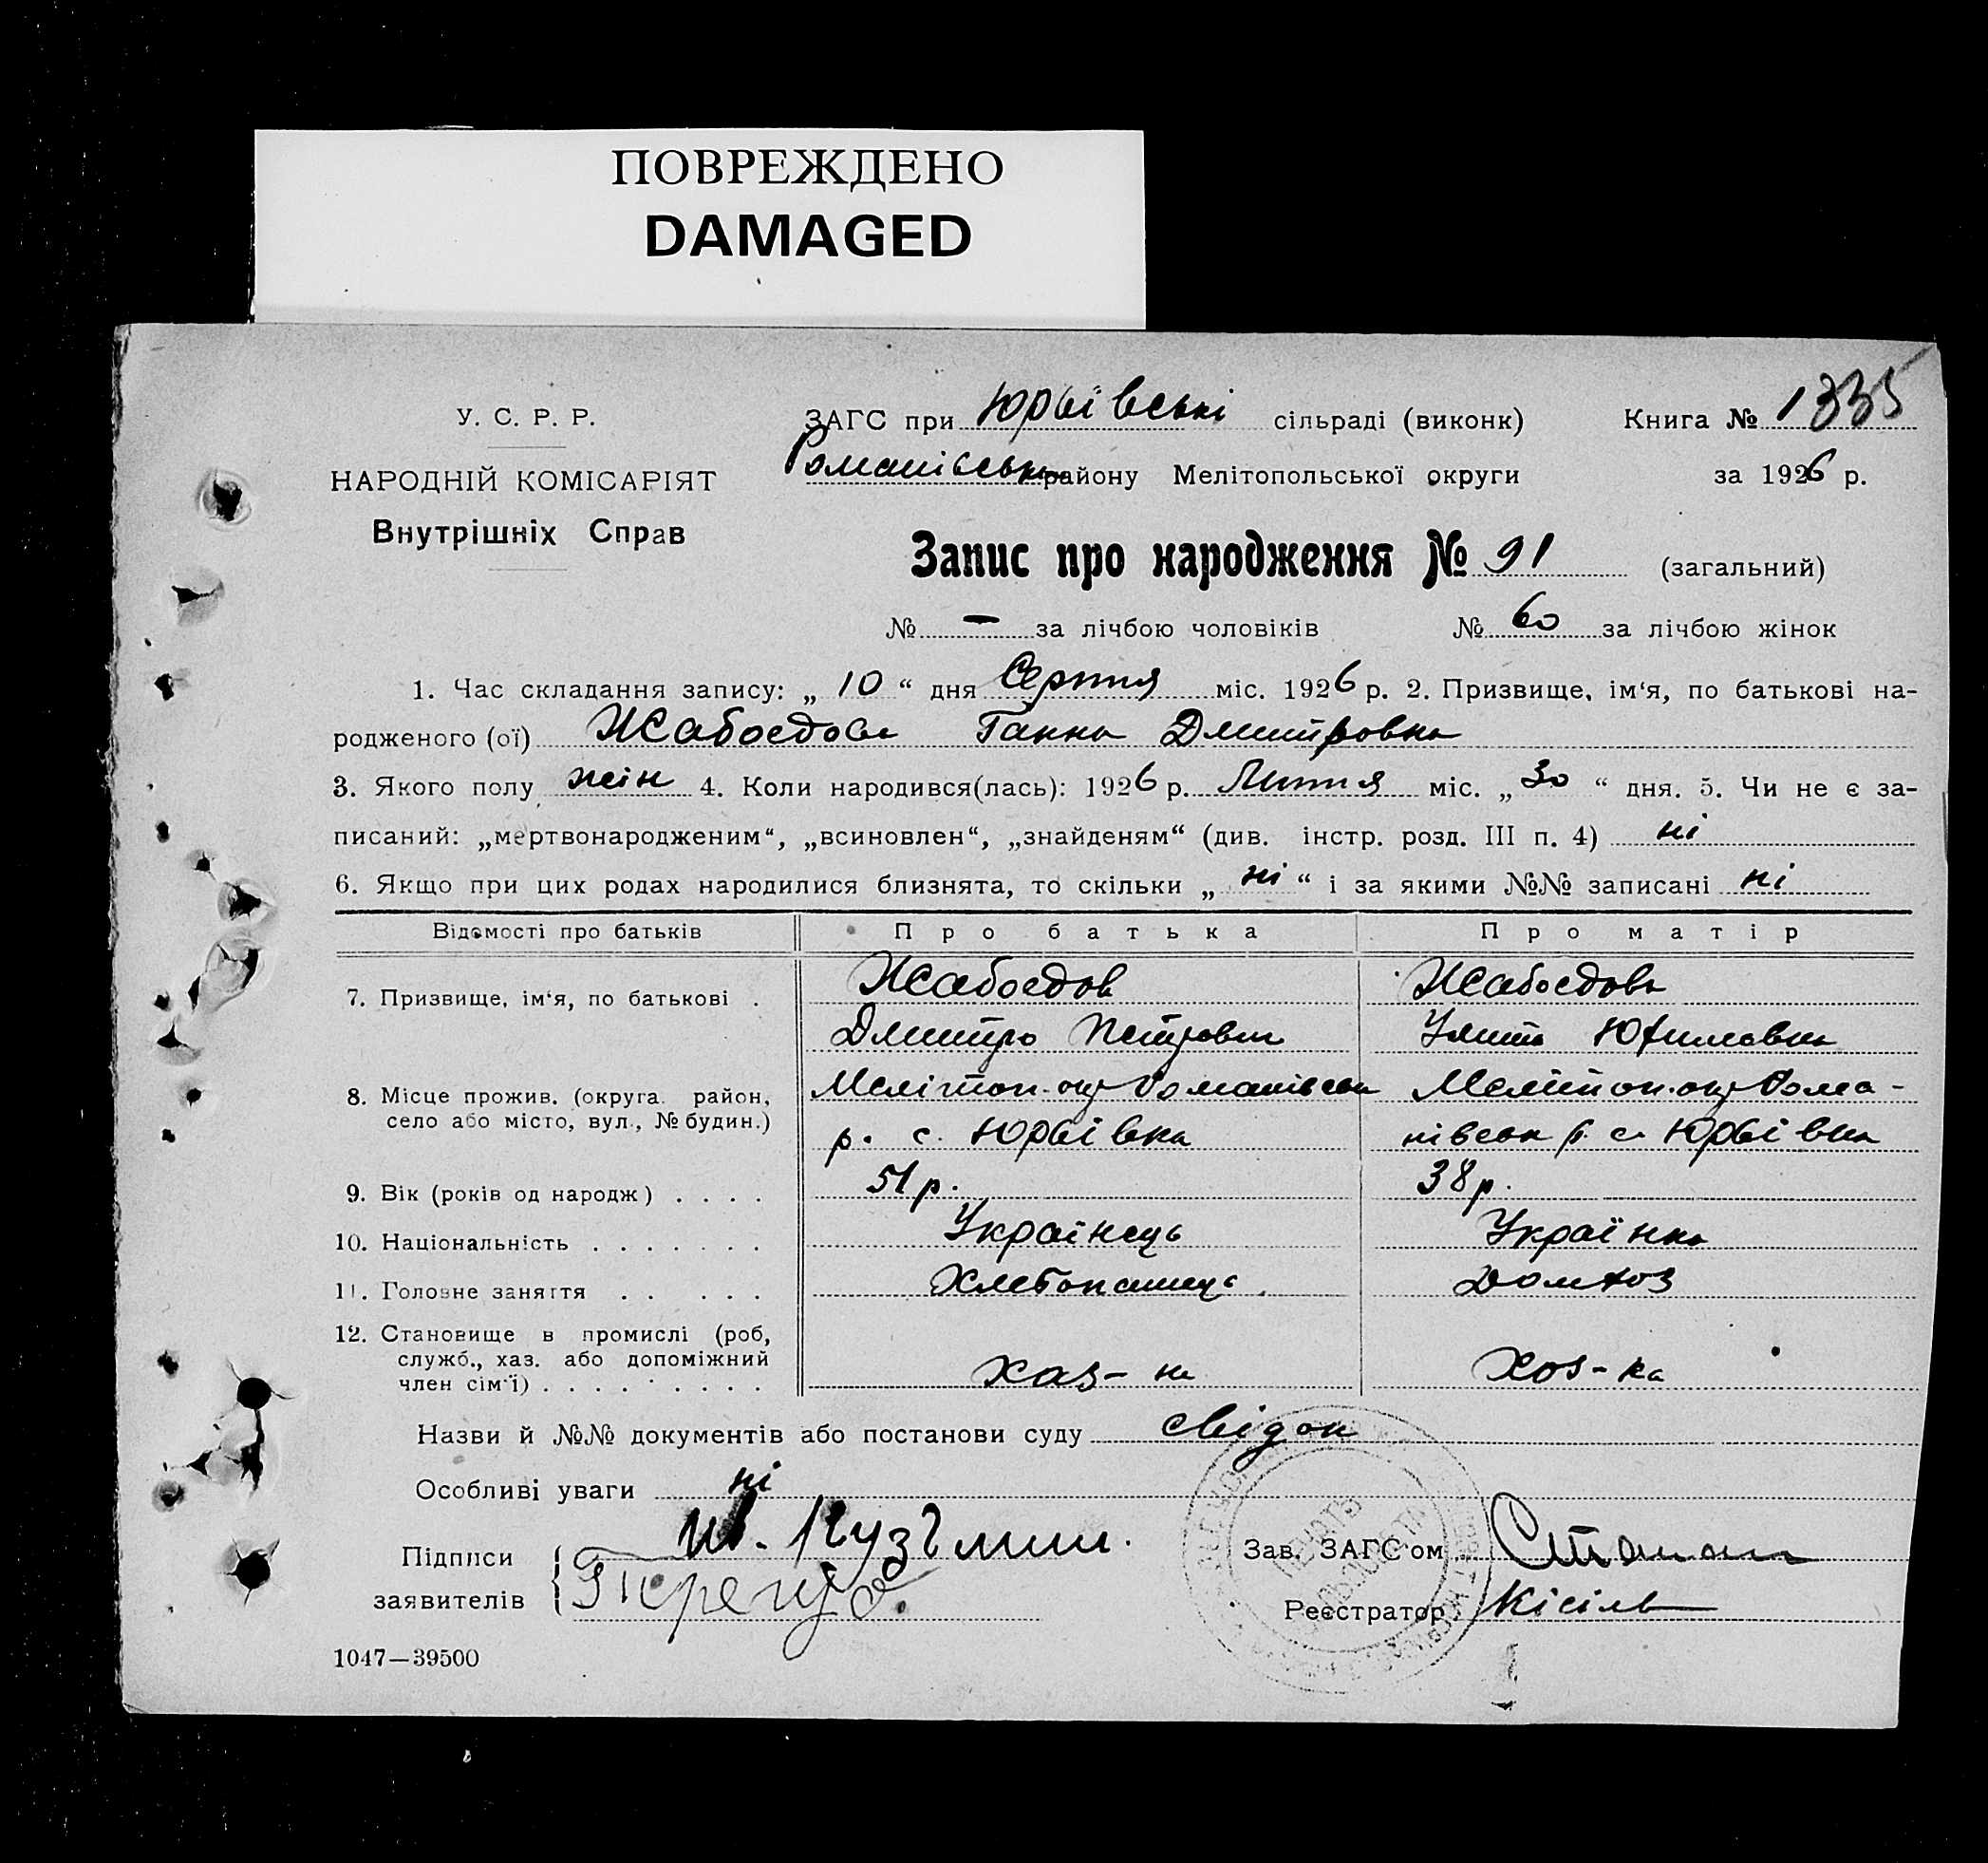 ПОВРЕЖДЕНО
DAMAGED
У. С. Р. Р.
НАРОДНІЙ КОМІСАРІЯТ
Внутрішніх Справ
ЗАГС при Юрьівські сільраді (виконк) Книга № 1335
Романівськ району Мелітопольської округи за 1926 р.
Запис про народження № 91 (загальний)
№ — за лічбою чоловіків № 60 за лічбою жінок
1. Час складання запису: „ 10 “ дня Серпня міс. 1926 р. 2. Призвище, ім‘я, по батькові на-
родженого (ої) Жабоєдова Ганна Дмитровна
3. Якого полу жін 4. Коли народився(лась): 1926 р. Липня міс. „ 30 “ дня. 5. Чи не є за-
писаний: „мертвонародженим“, „всиновлен“, „знайденям“ (див. інстр. розд. III п. 4) ні
6. Якщо при цих родах народилися близнята, то скільки „ ні “ і за якими №№ записані ні
Відомості про батьків Про батька Про матір
7. Призвище, ім‘я, по батькові . Жабоєдов Жабоєдова
Дмитро Петрович Улита Юхимовна
8. Місце прожив. (округа район, Мелітоп. окр Романівськ Меліт оп. окр Рома-
село або місто, вул., № будин.) р. с. Юрьівка нівськ р. с. Юрьівка
9. Вік (років од народж) . . . . 51 р. 38 р.
10. Національність . . . . . . . Українець Українка
11. Головне заняття . . . . . Хлебопашець Домхоз
12. Становище в промислі (роб,
служб., хаз. або допоміжний
член сім‘ї) . . . . . . . . . Хаз-н Хоз-ка
Назви й №№ документів або постанови суду свідок
Особливі уваги ні
Підписи Кузьмин. Зав. ЗАГС‘ом
заявителів Реєстратор Кісіль
1047—39500